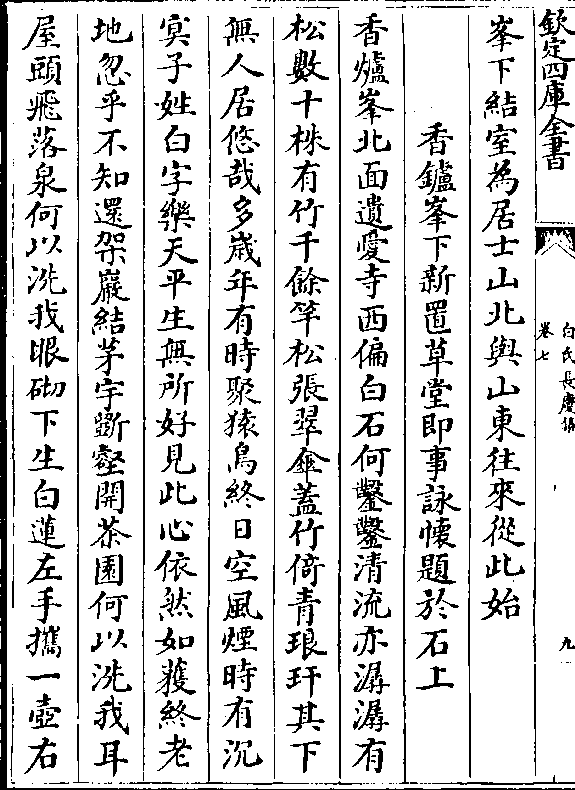 欽定四庫全書
白氏長慶集
卷七
九
峯下結室為居士山北與山東往來從此始
香鑪峯下新置草堂即事詠懷題於石上
香爐峯北面遺愛寺西偏白石何鑿鑿清流亦潺潺有
松數十株有竹千餘竿松張翠傘葢竹倚青琅玕其下
無人居悠哉多歲年有時聚猿鳥終日空風煙時有沉
冥子姓白字樂天平生無所好見此心依然如獲終老
地忽乎不知還架巖結茅宇斷壑開茶園何以洗我耳
屋頭飛落泉何以洗我眼砌下生白蓮左手攜一壺右